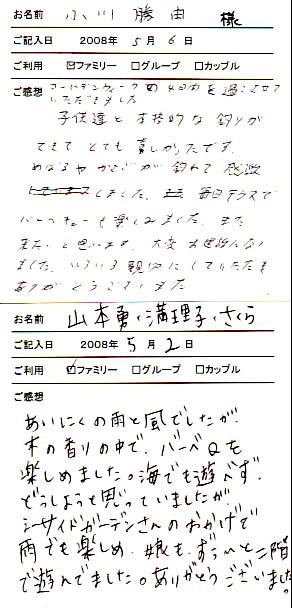 お名前 小川 勝由 様
ご記入日 2008年 5月 6日
ご利用 ☑ファミリー □グループ □カップル
ご感想 ゴールデンウィークの4日間を過ごさせて
いただきました
子供達と本格的な釣りが
できて とても 楽しかったです。
めばるや かさごが 釣れて 感激
しました。 毎日テラスで
バーベキューも楽しみました。また
来たいと思います。大変お世話になり
ました。いろいろ親切にしていただき
ありがとうございました
お名前 山本勇・満理子・さくら
ご記入日 2008年 5月 2日
ご利用 ☑ファミリー □グループ □カップル
ご感想
あいにくの雨と風でしたが、
木の香りの中で、バーベQを
楽しめました。海でも遊べず、
どうしようと思っていましたが
シーサイドガーデンさんのおかげで
雨でも楽しめ、娘も、ずぅーっと二階
で遊んでました。ありがとうございました。